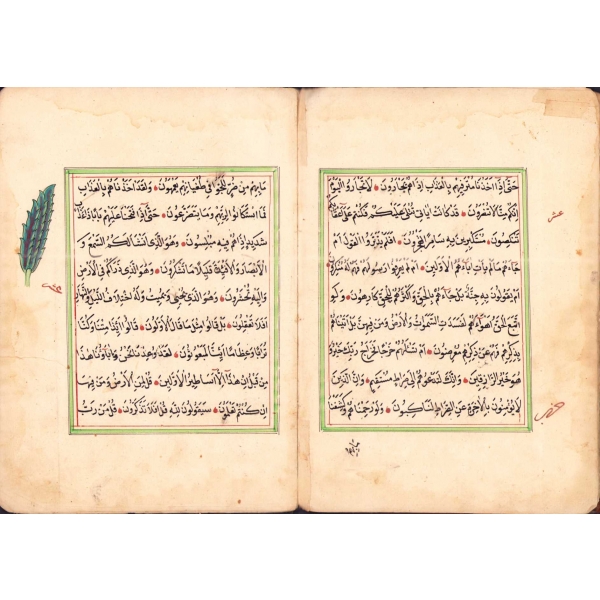 حَتّٰى اِذَا اَخَذْنَا مُتْرَفِيهِمْ بِالْعَذَابِ اِذَا هُمْ يَجْاَرُونَ لَا تَجْاَرُوا الْيَوْمَ
اِنَّكُمْ مِنَّا لَا تُنْصَرُونَ قَدْ كَانَتْ اٰيَاتِي تُتْلٰى عَلَيْكُمْ فَكُنْتُمْ عَلٰى اَعْقَابِكُمْ
عشر
تَنْكِصُونَ مُسْتَكْبِرِينَ بِهِ سَامِرًا تَهْجُرُونَ اَفَلَمْ يَدَّبَّرُوا الْقَوْلَ اَمْ
جَاءَهُمْ مَا لَمْ يَاْتِ اٰبَاءَهُمُ الْاَوَّلِينَ اَمْ لَمْ يَعْرِفُوا رَسُولَهُمْ فَهُمْ لَهُ مُنْكِرُونَ
اَمْ يَقُولُونَ بِهِ جِنَّةٌ بَلْ جَاءَهُمْ بِالْحَقِّ وَاَكْثَرُهُمْ لِلْحَقِّ كَارِهُونَ وَلَوِ
اتَّبَعَ الْحَقُّ اَهْوَاءَهُمْ لَفَسَدَتِ السَّمٰوَاتُ وَالْاَرْضُ وَمَنْ فِيهِنَّ بَلْ اَتَيْنَاهُمْ
بِذِكْرِهِمْ فَهُمْ عَنْ ذِكْرِهِمْ مُعْرِضُونَ اَمْ تَسْاَلُهُمْ خَرْجًا فَخَرَاجُ رَبِّكَ خَيْرٌ وَ
هُوَ خَيْرُ الرَّازِقِينَ وَاِنَّكَ لَتَدْعُوهُمْ اِلٰى صِرَاطٍ مُسْتَقِيمٍ وَاِنَّ الَّذِينَ
لَا يُؤْمِنُونَ بِالْاٰخِرَةِ عَنِ الصِّرَاطِ لَنَاكِبُونَ وَلَوْ رَحِمْنَاهُمْ وَكَشَفْنَا
حزب
مَا بِهِمْ مِنْ ضُرٍّ لَلَجُّوا فِي طُغْيَانِهِمْ يَعْمَهُونَ وَلَقَدْ اَخَذْنَاهُمْ بِالْعَذَابِ
فَمَا اسْتَكَانُوا لِرَبِّهِمْ وَمَا يَتَضَرَّعُونَ حَتّٰى اِذَا فَتَحْنَا عَلَيْهِمْ بَابًا ذَا عَذَابٍ
شَدِيدٍ اِذَا هُمْ فِيهِ مُبْلِسُونَ وَهُوَ الَّذِي اَنْشَاَ لَكُمُ السَّمْعَ وَ
الْاَبْصَارَ وَالْاَفْئِدَةَ قَلِيلًا مَا تَشْكُرُونَ وَهُوَ الَّذِي ذَرَاَكُمْ فِي الْاَرْضِ
وَاِلَيْهِ تُحْشَرُونَ وَهُوَ الَّذِي يُحْيِي وَيُمِيتُ وَلَهُ اخْتِلَافُ الَّيْلِ وَالنَّهَارِ
عشر
اَفَلَا تَعْقِلُونَ بَلْ قَالُوا مِثْلَ مَا قَالَ الْاَوَّلُونَ قَالُوا اَئِذَا مِتْنَا وَكُنَّا
تُرَابًا وَعِظَامًا اَئِنَّا لَمَبْعُوثُونَ لَقَدْ وُعِدْنَا نَحْنُ وَاٰبَاؤُنَا هٰذَا
مِنْ قَبْلُ اِنْ هٰذَا اِلَّا اَسَاطِيرُ الْاَوَّلِينَ قُلْ لِمَنِ الْاَرْضُ وَمَنْ فِيهَا
اِنْ كُنْتُمْ تَعْلَمُونَ سَيَقُولُونَ لِلّٰهِ قُلْ اَفَلَا تَذَكَّرُونَ قُلْ مَنْ رَبُّ